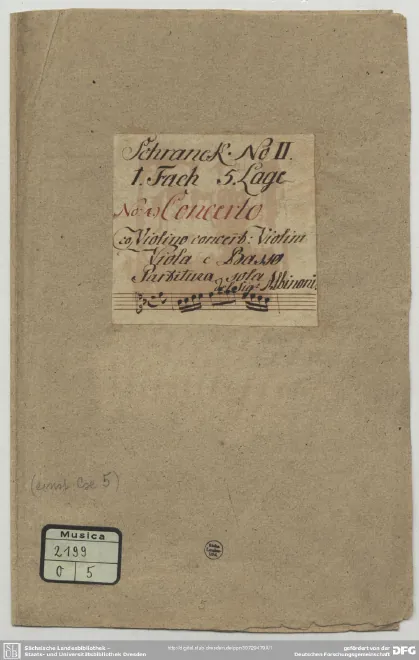 Schranck. No II.
1. Fach 5. Lage
No: Concerto
co Violino concert: Violin
Viola e Basso
Partitura sola
del Sigr. Albinoni.
(einst Cx 5)
Musica
2199
O 5
Sächsische Landesbibliothek –
Staats- und Universitätsbibliothek Dresden
gefördert von der
Deutschen Forschungsgemeinschaft
DFG